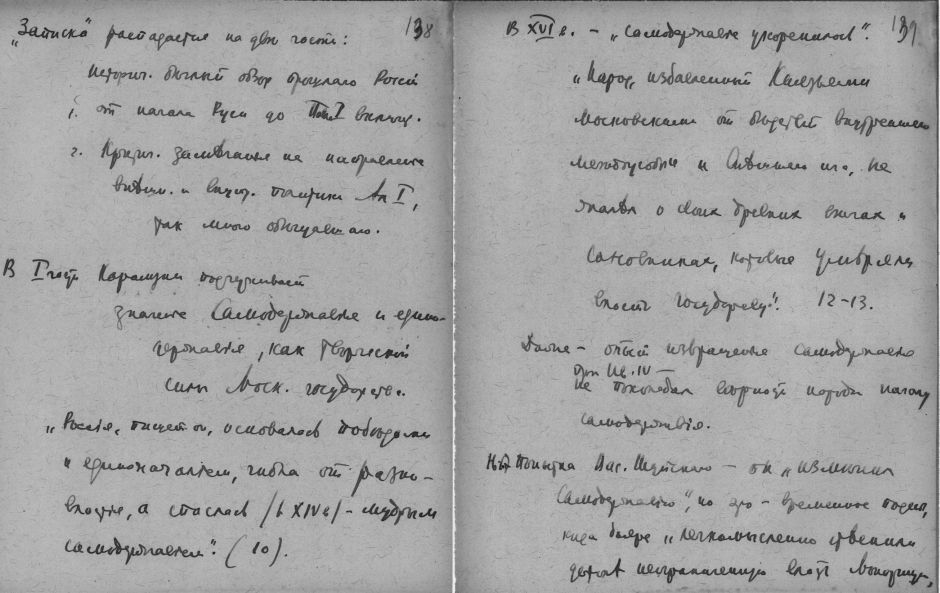 138
„Записка" распадается на две части:
историч. беглый обзор прошлого России
1. от начала Руси до Павла I включ.
2. Критич. замечания на направление
внешн. и внутр. политики Ал I,
так много обещавшего.
В I части Карамзин подчеркивает
значение Самодержавия и едино-
державия, как творческой
силы Моск. государства.
„Россия, пишет он, основалась победами
и единоначалием, гибла от разно-
властия, а спаслась /в XIV в/ – мудрым
самодержавием". (10).
139
В XVI в. – „самодержавие укоренилось".
„Народ, избавленный Князьями
Московскими от бедствий внутреннего
междоусобия и внешнего ига, не
жалел о своих древних вечах и
сановниках, которые умеряли
власть государеву". 12–13.
Далее – опыт извращения самодержавия
при Ив. IV –
не поколебал верности народа началу
самодержавия.
Попытка Вас. Шуйского – он „изменил
Самодержавию", но это – временное
когда бояре „легкомысленно
неограниченную власть Монархию,